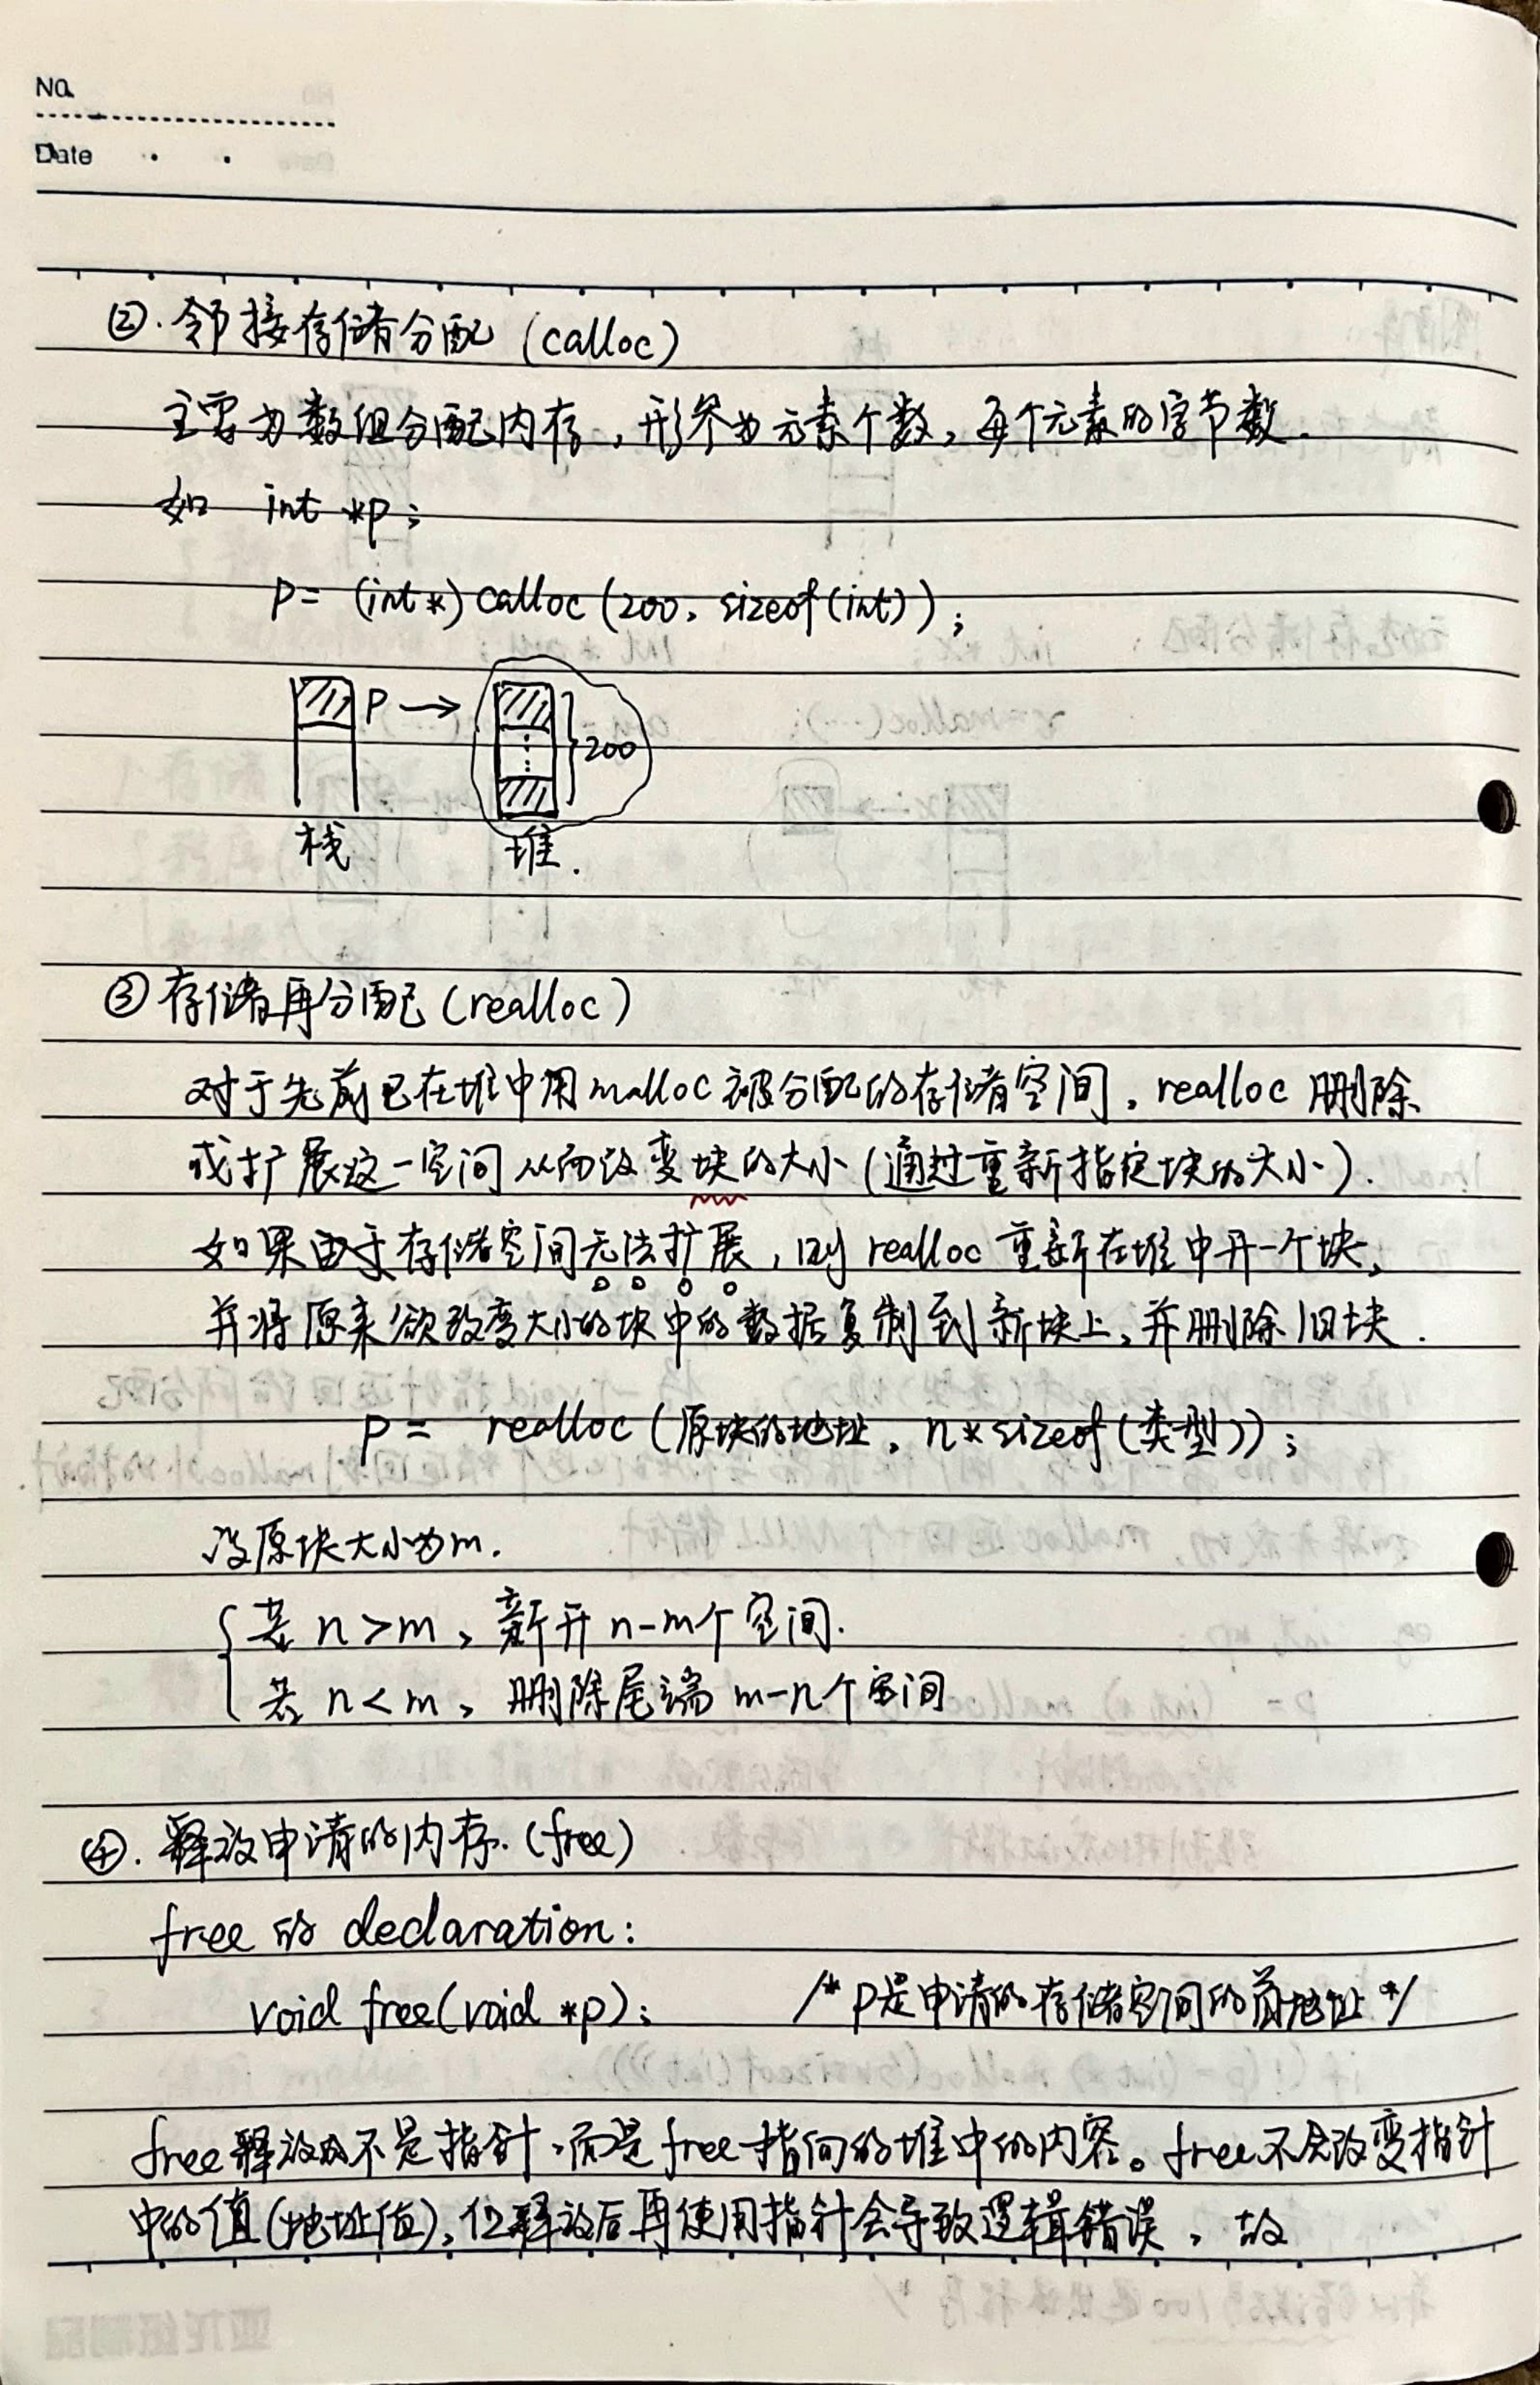 No.
Date
②. 邻接存储分配 (calloc)
主要为数组分配内存,形参为元素个数,每个元素的字节数.
如 int *p;
p= (int*) calloc (200, sizeof(int));
P → 200
栈 堆.
③ 存储再分配 (realloc)
对于先前已在堆中用malloc被分配的存储空间, realloc 删除
或扩展这一空间从而改变块的大小(通过重新指定块的大小).
如果由于存储空间无法扩展,则 realloc 重新在堆中开一个块,
并将原来欲改变大小的块中的数据复制到新块上,并删除旧块.
p = realloc (原块的地址, n*sizeof(类型));
设原块大小为m.
若 n>m, 新开 n-m个空间.
若 n<m, 删除尾端 m-n个空间
④. 释放申请的内存.(free)
free 的 declaration:
void free(void *p); /* p是申请的存储空间的首地址 */
free释放的不是指针,而是free指向的堆中的内容。free不会改变指针
中的值(地址值),但释放后再使用指针会导致逻辑错误,故